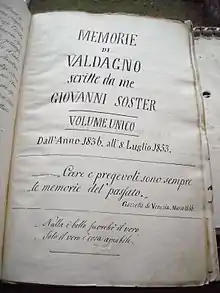 MEMORIE
DI
VALDAGNO
scritte da me
GIOVANNI SOSTER
VOLUME UNICO
Dall'Anno 1836. all' 8. Luglio 1853.
Care e pregevoli sono sempre
le memorie del passato.
Gazzetta di Venezia,
Nulla è bello fuorchè il vero
Solo il vero è cosa amabile.